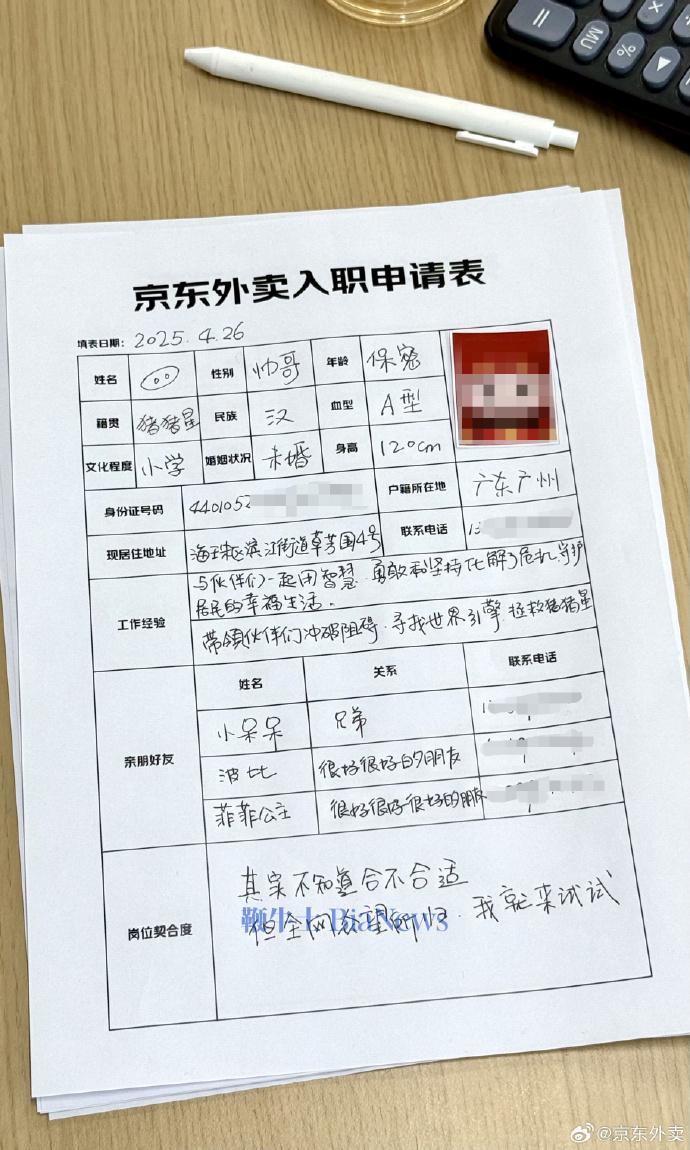 MU
%
京东外卖入职申请表
填表日期： 2025.4.26
姓名 性别 帅哥 年龄 保密
籍贯 猪猪星 民族 汉 血型 A型
文化程度 小学 婚姻状况 未婚 身高 120cm
身份证号码 4401052 户籍所在地 广东广州
现居住地址 海珠区滨江街道草芳围4号 联系电话 13
工作经验 与伙伴们一起用智慧、勇敢和坚持化解了危机,守护
居民的幸福生活。
带领伙伴们冲破阻碍、寻找世界引擎 拯救猪猪星
亲朋好友 姓名 关系 联系电话
小呆呆 兄弟 1
波比 很好很好的朋友
菲菲公主 很好很好很好的朋友
岗位契合度 其实不知道合不合适
但全网众望所归、我就来试试
鞭牛士 BiaNews
@京东外卖